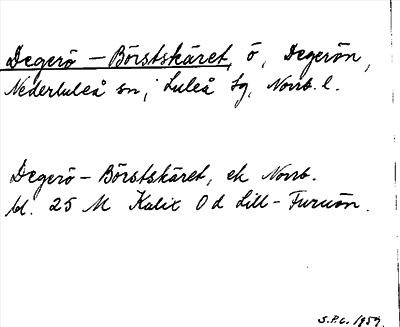 Degerö – Börstskäret, ö, Degerön,
Nederluleå sn, Luleå tg, Norrb. l.
Degerö – Börstskäret, ek Norrb.
bl. 25 M Kalix Od Lill-Furuön.
S.P.G. 1959.